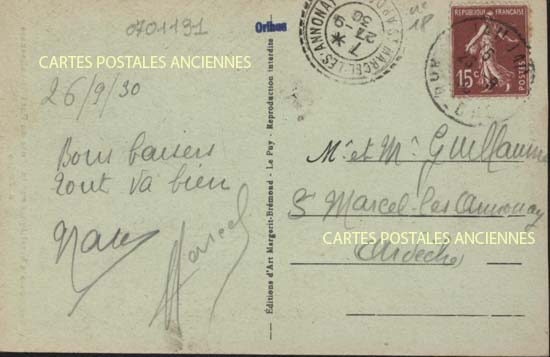 0701191
Oribus
n° 18
CARTES POSTALES ANCIENNES
26/9/30
Bons baisers
tout va bien
Marcel
Éditions d'Art Margerit-Brémond - Le Puy - Reproduction interdite
ST MARCEL-LES-ANNONAY
7
27
9
30
REPUBLIQUE FRANÇAISE
15c
POSTES
Mr et Me Guillaume
St Marcel-les-Annonay
CARTES POSTALES ANCIENNES
Ardèche